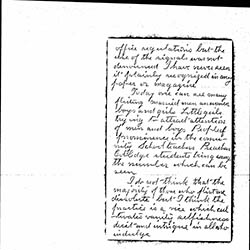 office regulations but the
use of the signals was not
I have never seen
it plainly recognized in any
paper or magazine
Today one can see many
flirting married men and women
boys and girls Little girls
trying to attract attention
of men and boys People of
prominence in the commun
ity School teachers Preachers
College students being among
the number which can be
seen
I do not think that the
majority of those who flirt are
dissolute but I think the
practice is a vice which cul
tivates vanity selfishness
deceit and intrigue in all who
indulge